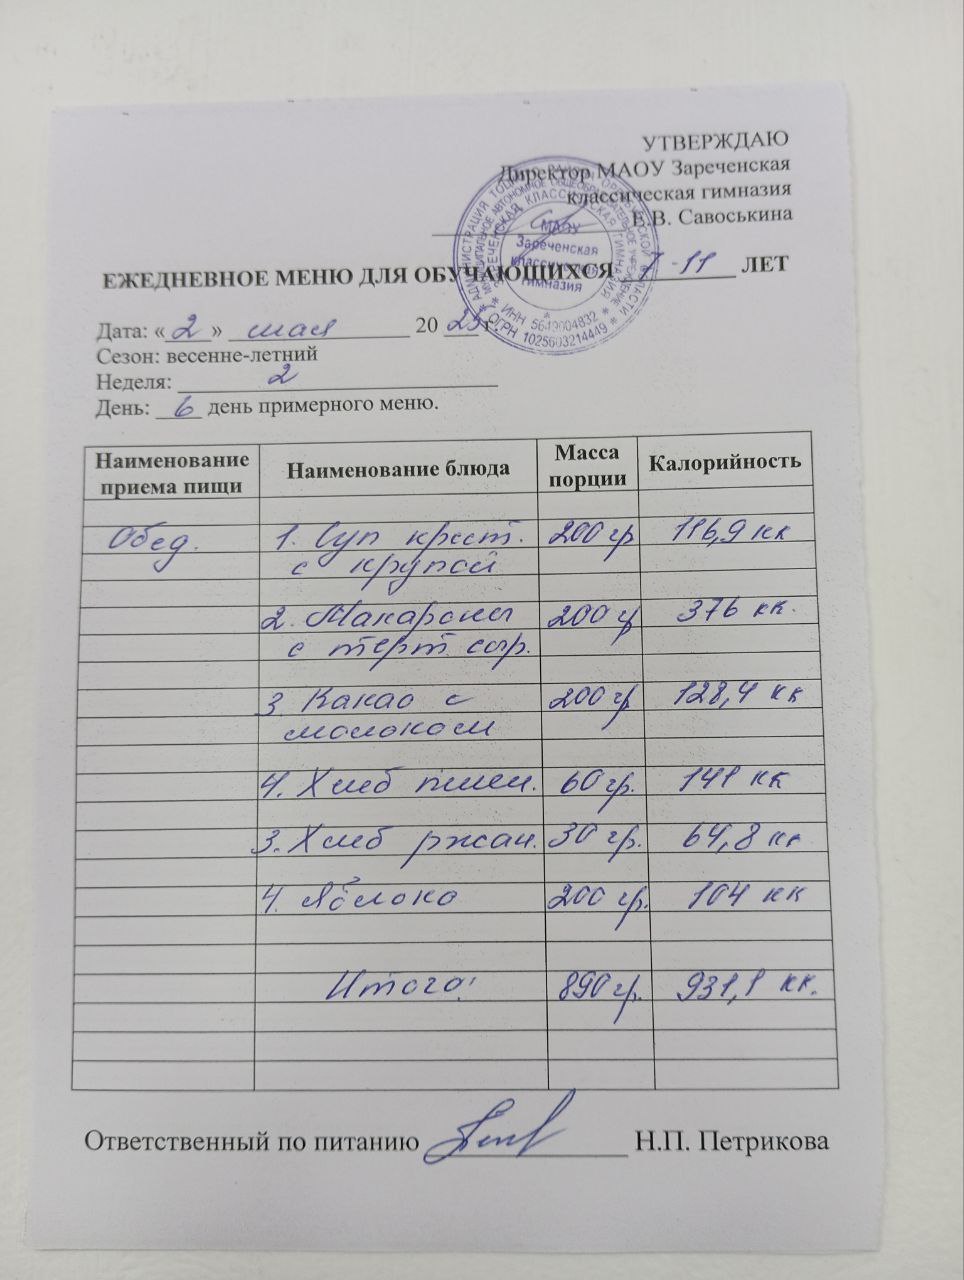 УТВЕРЖДАЮ
Директор МАОУ Зареченская
классическая гимназия
Е.В. Савоськина
МАОУ
Зареченская
классическая
гимназия
ИНН 5649004832
ОГРН 1025603214449
ЕЖЕДНЕВНОЕ МЕНЮ ДЛЯ ОБУЧАЮЩИХСЯ 7-11 ЛЕТ
Дата: «2» мая 2025 г.
Сезон: весенне-летний
Неделя: 2
День: 6 день примерного меню.
Наименование приема пищи Наименование блюда Масса порции Калорийность
Обед. 1. Суп крест. 200 гр 116,9 кк
с крупой
2. Макароны 200 гр 376 кк.
с терт. сыр.
3 Какао с 200 гр 128,4 кк
молоком
4. Хлеб пшен. 60 гр. 141 кк
3. Хлеб ржан. 30 гр. 64,8 кк
4. Яблоко 200 гр. 104 кк
Итого: 890 гр. 931,1 кк.
Ответственный по питанию Н.П. Петрикова